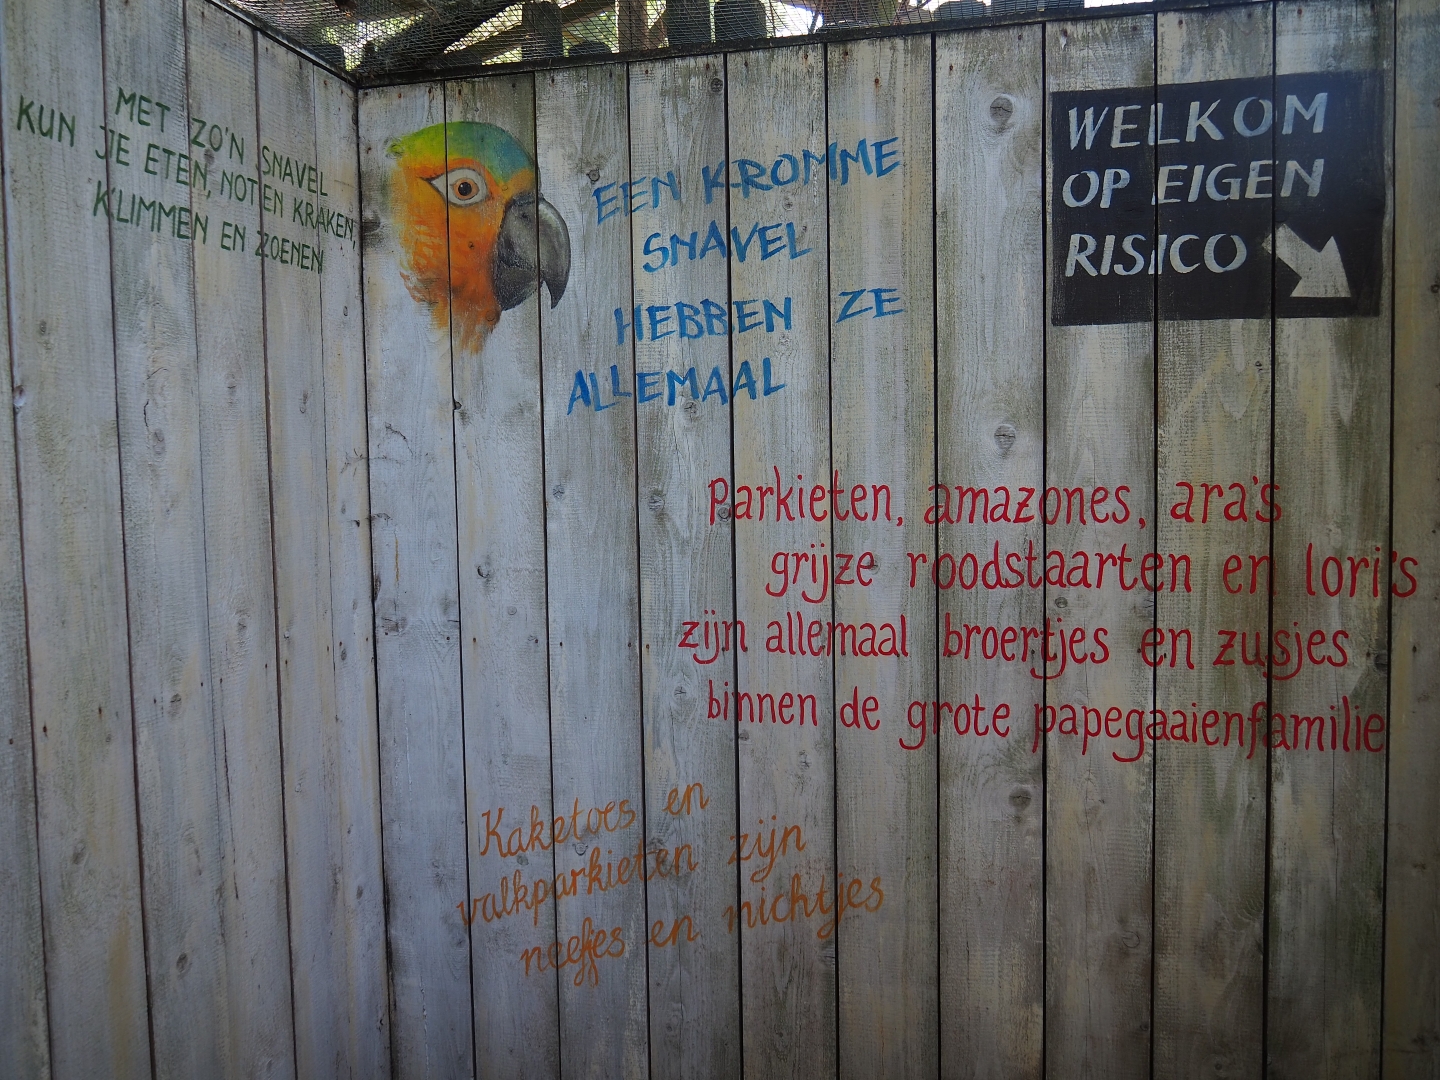 MET ZO'N SNAVEL
KUN JE ETEN, NOTEN KRAKEN,
KLIMMEN EN ZOENEN!
EEN KROMME
SNAVEL
HEBBEN ZE
ALLEMAAL
WELKOM
OP EIGEN
RISICO
Parkieten, amazones, ara's
grijze roodstaarten en lori's
zijn allemaal broertjes en zusjes
binnen de grote papegaaienfamilie
Kaketoes en
valkparkieten zijn
neefjes en nichtjes